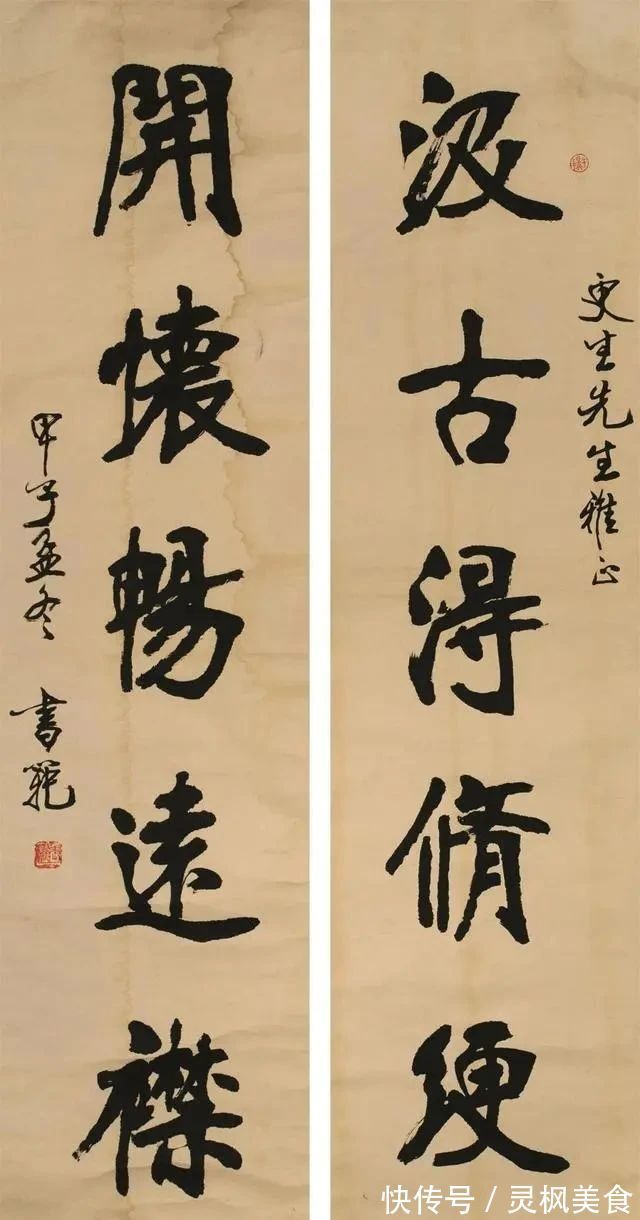 更生先生雅正
汲古得脩綆
開懷暢遠襟
甲子孟冬 書範
快传号 / 灵枫美食